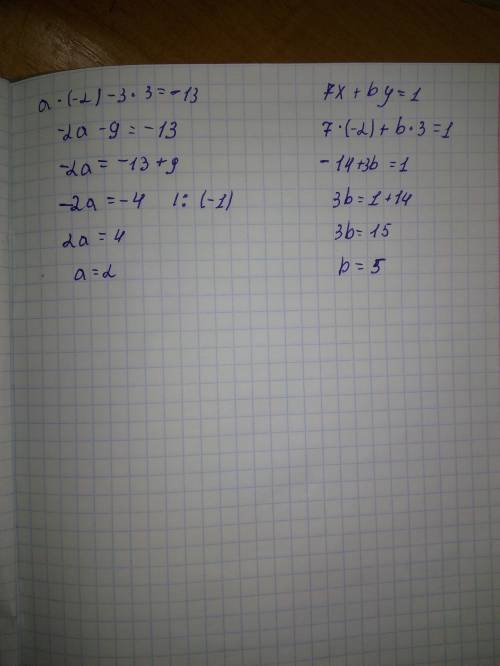 a·(-2)-3·3=-13
-2a-9=-13
-2a=-13+9
-2a=-4 |:(-1)
2a=4
a=2
7x+by=1
7·(-2)+b·3=1
-14+3b=1
3b=1+14
3b=15
b=5